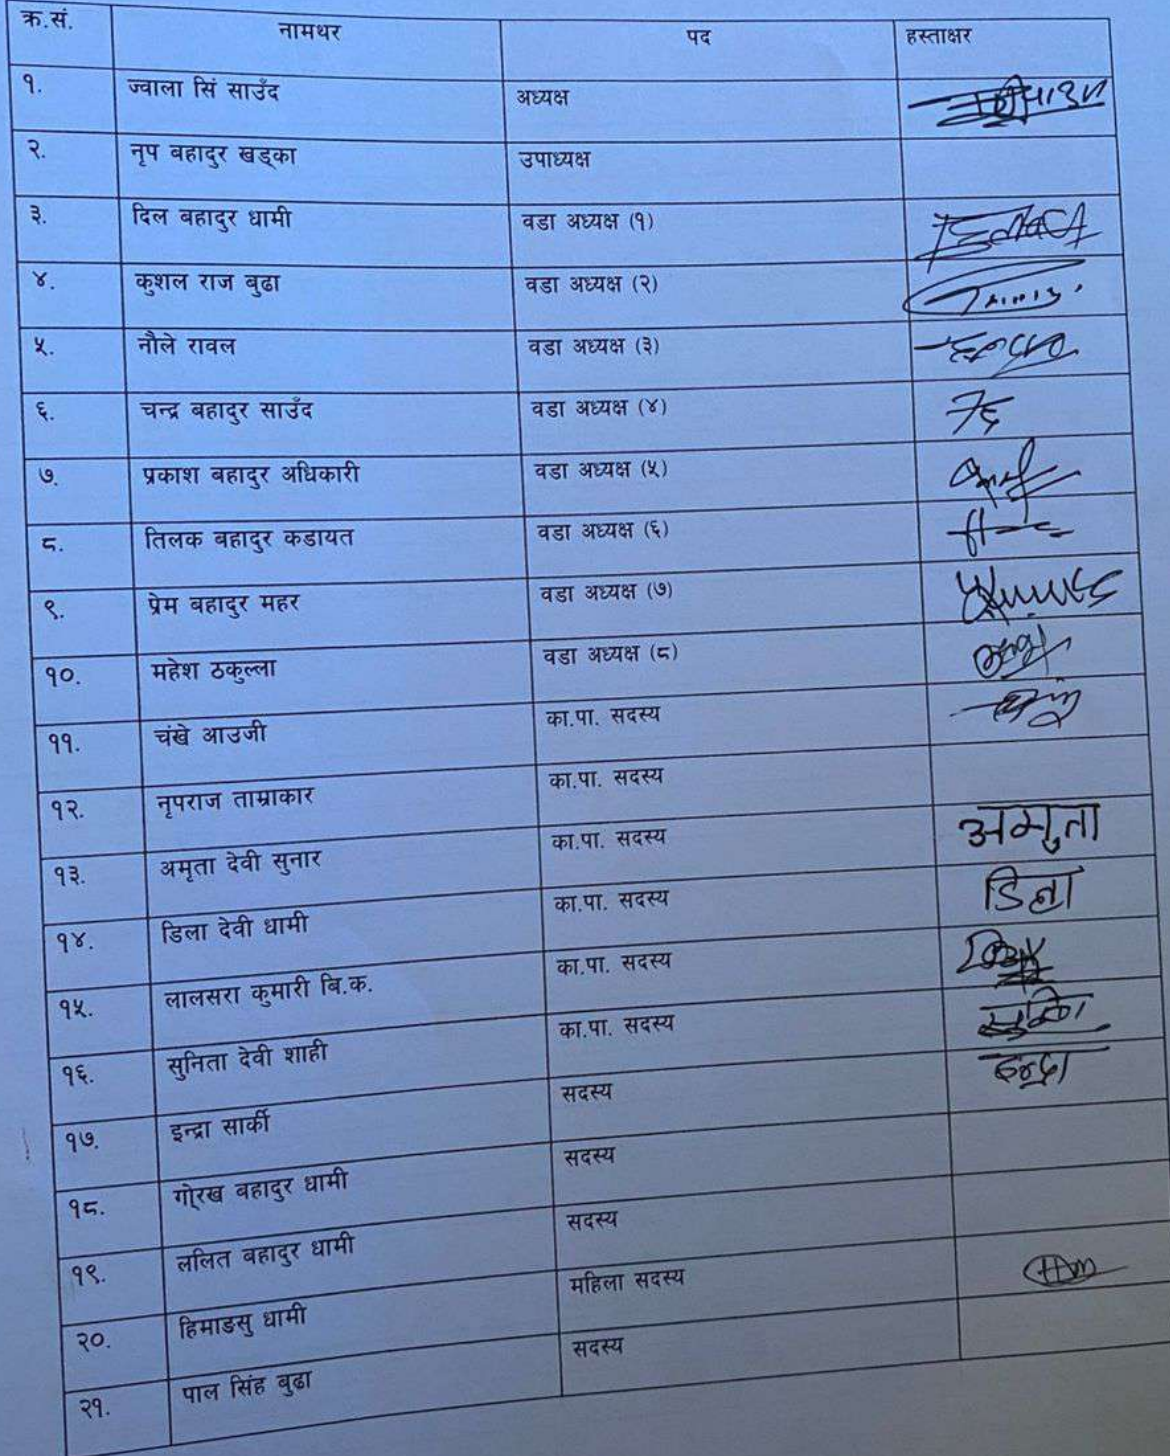 क्र.सं. नामथर पद हस्ताक्षर
१. ज्वाला सिं साउँद अध्यक्ष
२. नृप बहादुर खड्का उपाध्यक्ष
३. दिल बहादुर धामी वडा अध्यक्ष (१)
४. कुशल राज बुढा वडा अध्यक्ष (२)
५. नौले रावल वडा अध्यक्ष (३)
६. चन्द्र बहादुर साउँद वडा अध्यक्ष (४)
७. प्रकाश बहादुर अधिकारी वडा अध्यक्ष (५)
८. तिलक बहादुर कडायत वडा अध्यक्ष (६)
९. प्रेम बहादुर महर वडा अध्यक्ष (७)
१०. महेश ठकुल्ला वडा अध्यक्ष (८)
११. चंखे आउजी का.पा. सदस्य
१२. नृपराज ताम्राकार का.पा. सदस्य
१३. अमृता देवी सुनार का.पा. सदस्य अमृता
१४. डिला देवी धामी का.पा. सदस्य डिला
१५. लालसरा कुमारी बि.क. का.पा. सदस्य
१६. सुनिता देवी शाही का.पा. सदस्य
१७. इन्द्रा सार्की सदस्य इन्द्रा
१८. गो्रख बहादुर धामी सदस्य
१९. ललित बहादुर धामी सदस्य
२०. हिमाडसु धामी महिला सदस्य
२१. पाल सिंह बुढा सदस्य